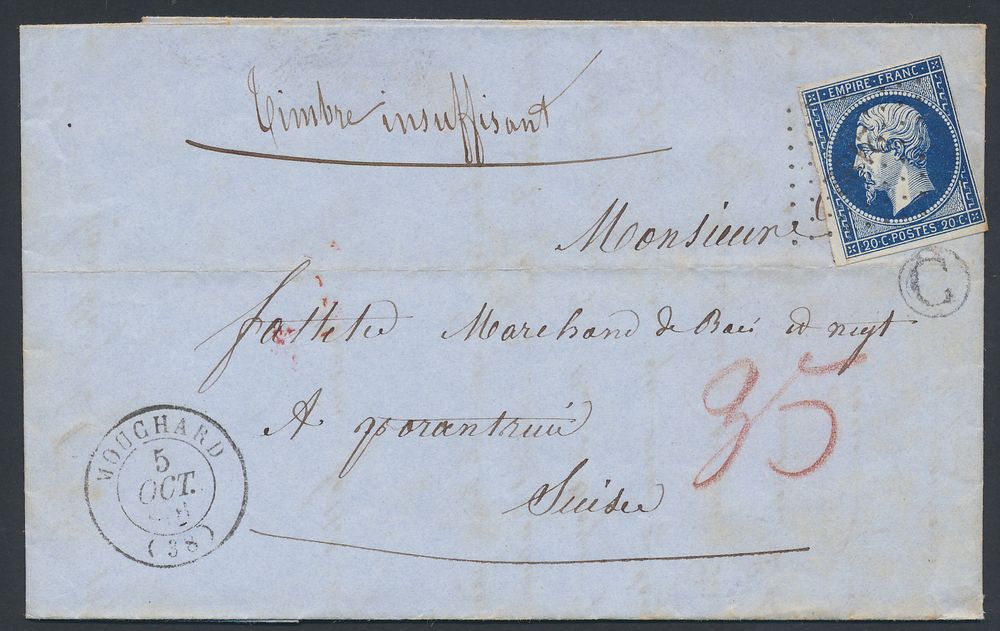 Timbre insuffisant
EMPIRE · FRANC ·
20 C POSTES 20 C
Monsieur
C
fattete Marchand de Bois et negt
35
A porantrui
Suisse
MOUCHARD
5
OCT.
(38)